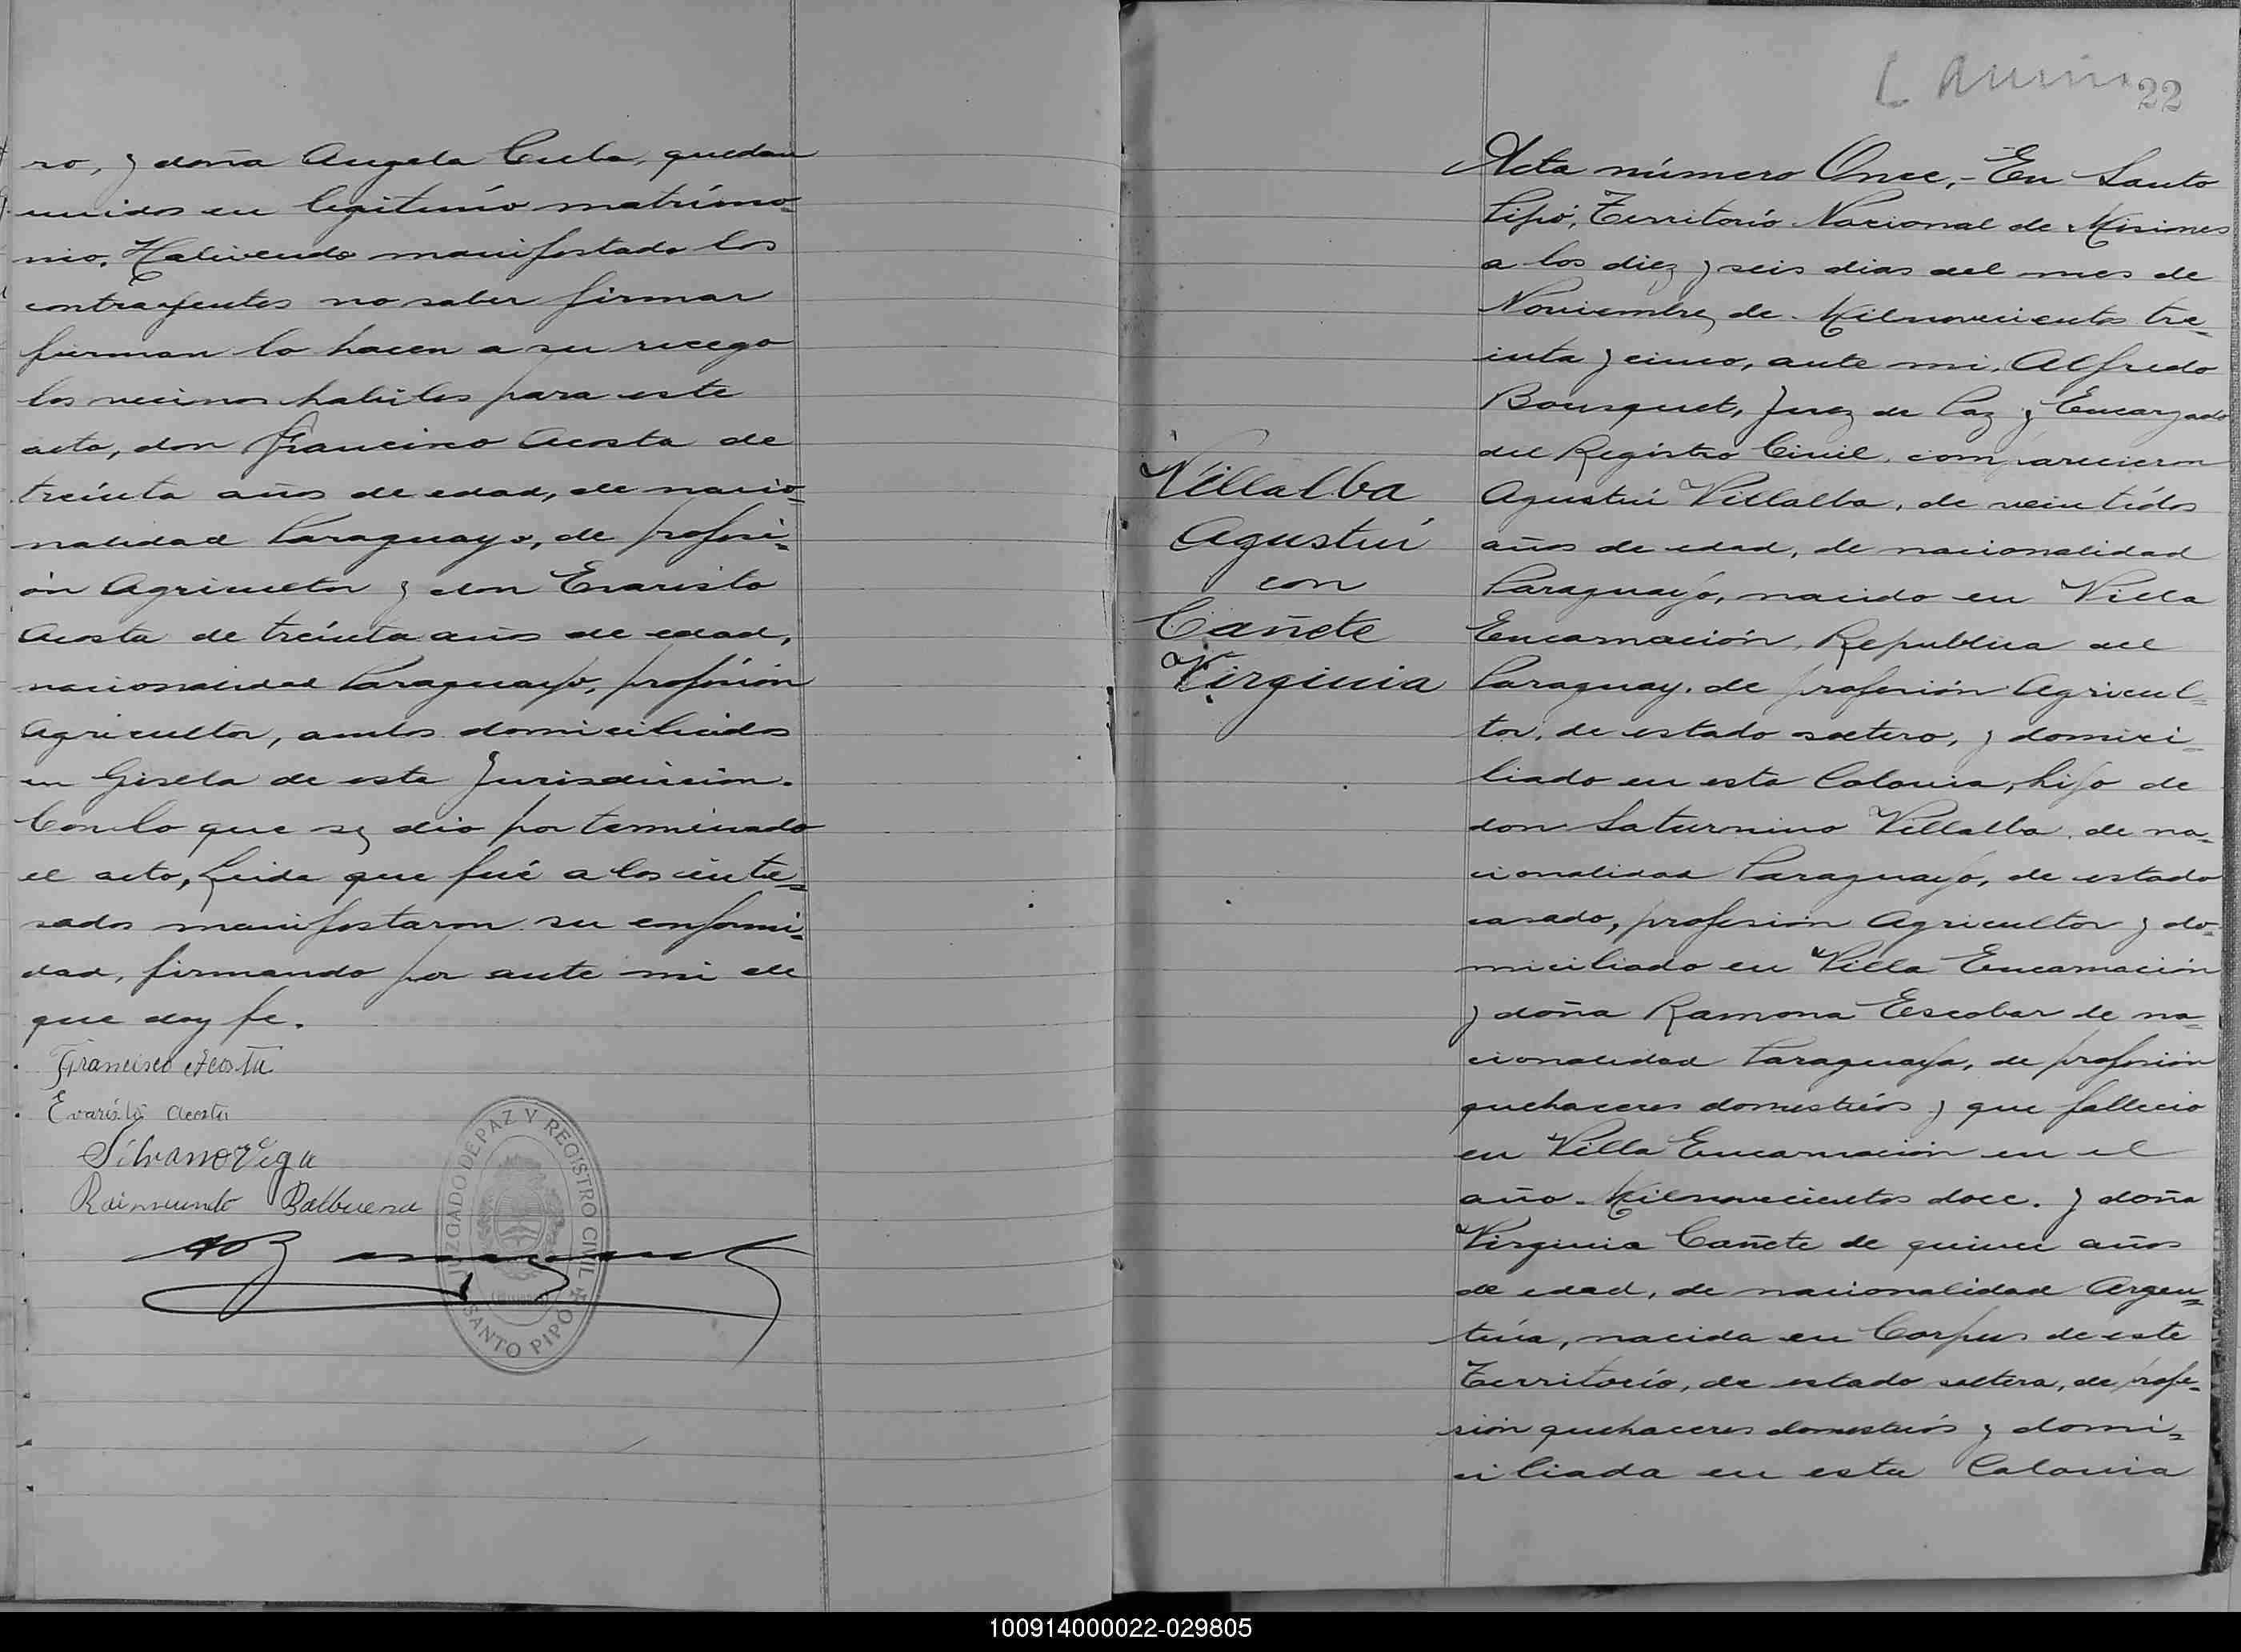 ro, y doña Angela Cuba, quedan
unidos en legitimio matrimo-
nio. Halivendo manifestado los
contrayentes no saber firmar
firman lo hacen a su ruego
los vecinos habiles para este
acto, don Francisco Acosta de
treinta años de edad, de nacio-
nalidad Paraguayo, de profesi-
ón Agricultor y don Evaristo
Acosta de treinta años de edad,
nacionalidad Paraguayo, profesión
Agricultor, ambos domiciliados
en Gisela de esta Jurisdiccion.
Con lo que se dio por terminado
el acto, Leida que fué a los inte-
sados manifestaron su conformi-
dad, firmando por ante mi de
que doy fe.
Francisco Acosta
Evaristo Acosta
Silvano Vega
Raimundo Balbuena
JUZGADO DE PAZ Y REGISTRO CIVIL
SANTO PIPÓ
22
Acta número Once,- En Santo
Pipó, Territorio Nacional de Misiones
a los diez y seis dias del mes de
Noviembre de Milnovecientos tre-
inta y cinco, ante mi, Alfredo
Bousquet, Juez de Paz y Encargado
del Registro Civil, comparecieron
Agustin Villalba, de veintidós
años de edad, de nacionalidad
Paraguayo, nacido en Villa
Encarnación, Republica del
Paraguay, de profesión Agricul-
tor, de estado soltero, y domici-
liado en esta Colonia, hijo de
don Saturnino Villalba, de na-
cionalidad Paraguayo, de estado
casado, profesion Agricultor y do-
miciliado en Villa Encarnación
y doña Ramona Escobar de na-
cionalidad Paraguaya, de profesion
quehaceres domesticós y que fallecio
en Villa Encarnación en el
año Milnovecientos doce. y doña
Virginia Cañete de quince años
de edad, de nacionalidad Argen-
tina, nacida en Corpus de este
Territorio, de estado soltera, de profe-
sión quehaceres domesticós y domi-
ciliada en esta Colonia
Villalba
Agustin
con
Cañete
Virginia
100914000022-029805